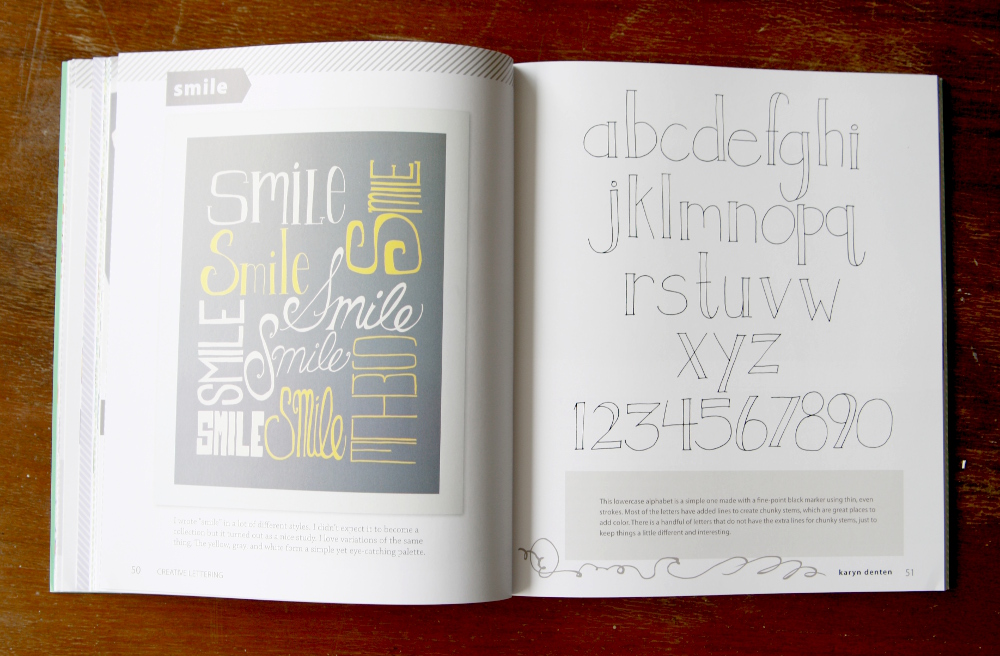 smile
SMiLe
SMiLE
Smile
Smile
SMILE
Smile
SMILE
Smile
I wrote "smile" in a lot of different styles. I didn't expect it to become a
collection but it turned out as a nice study. I love variations of the same
thing. The yellow, gray, and white form a simple yet eye-catching palette.
50 CREATIVE LETTERING
abcdefghi
jklmnopq
rstuvw
xyz
1234567890
This lowercase alphabet is a simple one made with a fine-point black marker using thin, even
strokes. Most of the letters have added lines to create chunky stems, which are great places to
add color. There is a handful of letters that do not have the extra lines for chunky stems, just to
keep things a little different and interesting.
karyn denten 51